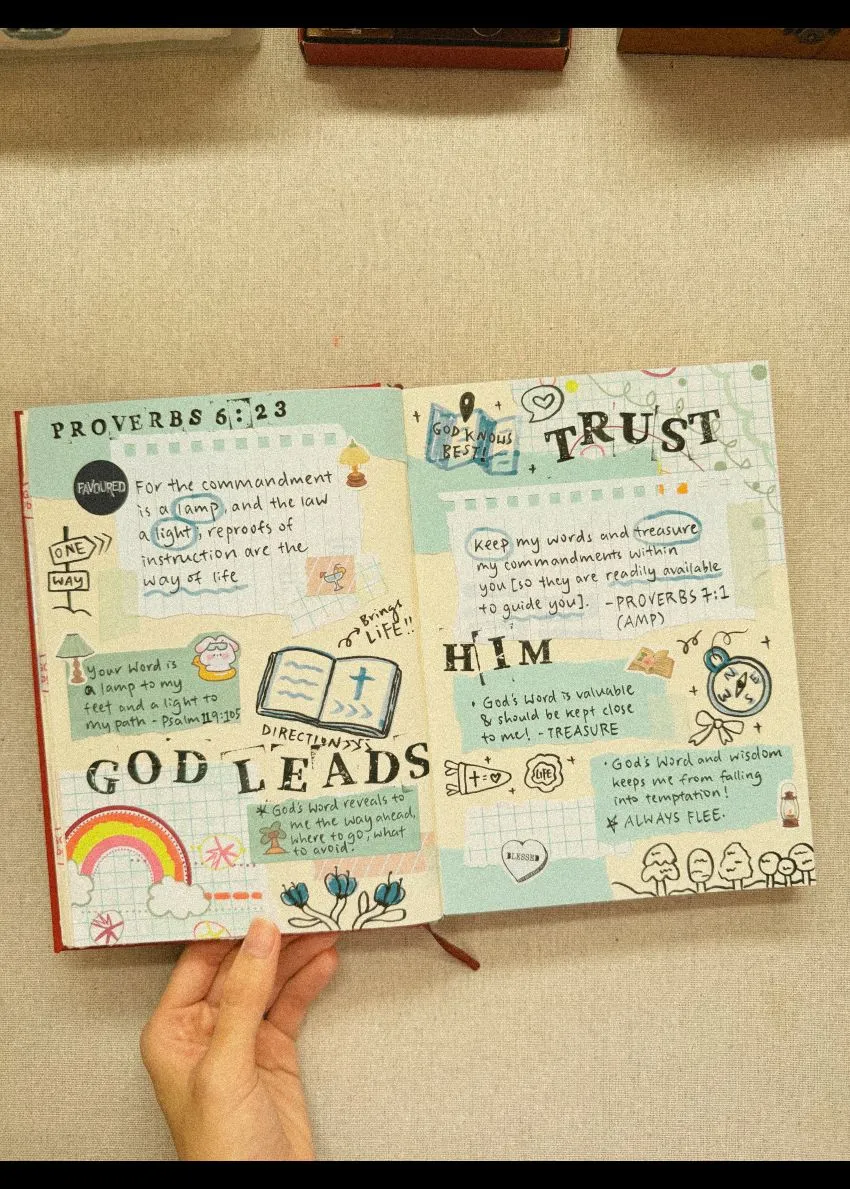 PROVERBS 6:23
FAVOURED
For the commandment
is a lamp, and the law
a light; reproofs of
instruction are the
way of life
ONE
WAY
Brings
LiFE!!
Your Word is
a lamp to my
feet and a light to
my path - Psalm 119:105
DIRECTION
GOD LEADS
* God's Word reveals to
me the way ahead,
where to go, what
to avoid.
GOD KNOWS
BEST!
TRUST
Keep my words and treasure
my commandments within
you [so they are readily available
to guide you]. - PROVERBS 7:1
(AMP)
HIM
N
E
S
W
• God's Word is valuable
& should be kept close
to me! - TREASURE
LIFE
• God's Word and wisdom
keeps me from falling
into temptation!
* ALWAYS FLEE.
BLESSED